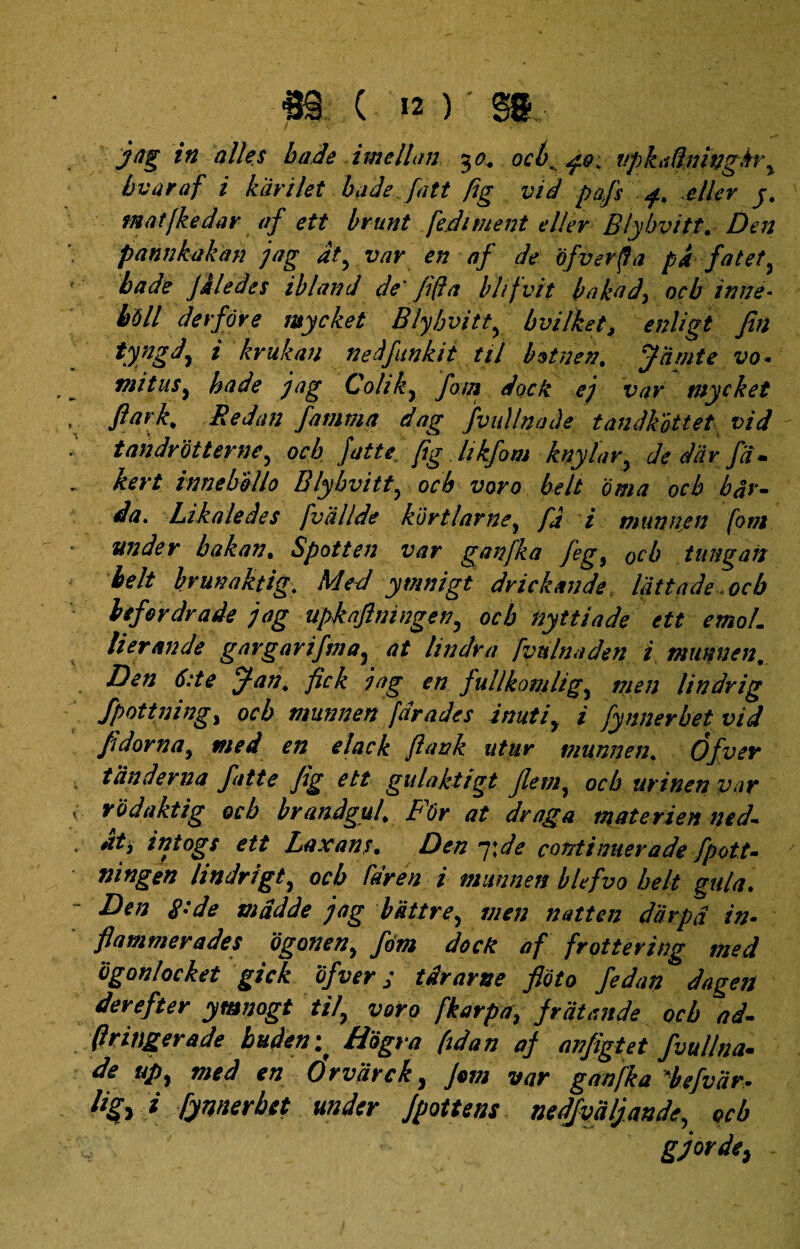 ( 12 )
jag in alles hade imellan 30. och 40. upkaſtningar,
hvaraf i kärilet hade ſatt ſig vid paſs 4. eller 5.
matſkedar af ett brunt ſediment eller Blyhvitt. Den
pannkakan jag åt, var en af de öfverſta på fatet,
hade ſåledes ibland de ſiſta blifvit bakad, och inne-
höll derföre mycket Blyhvitt, hvilket, enligt ſin
tyngd, i krukan nedſunkit til botnen. Jämte vo-
mitus, hade jag Colik, ſom dock ej var mycket
ſtark. Redan ſamma dag ſvullnade tandköttet vid
tandrötterne, och ſatte ſig likſom knylar, de där ſä-
kert innehöllo Blyhvitt, och voro helt öma och hår-
da. Likaledes ſvällde körtlarne, ſå i munnen ſom
under hakan. Spotten var ganſka ſeg, och tungan
helt brunaktig. Med ymnigt drickande lättade och
befordrade jag upkaſtningen, och nyttiade ett emol-
lierande gargariſma, at lindra ſvulnaden i munnen.
Den 6:te Jan. fick jag en fullkomlig, men lindrig
ſpottning, och munnen ſårades inuti, i ſynnerhet vid
ſidorna, med en elack ſtank utur munnen. Öfver
tänderna ſatte ſig ett gulaktigt ſlem, och urinen var
rödaktig och brandgul. För at draga materien ned-
åt, intogs ett Laxans. Den 7:de continuerade ſpott-
ningen lindrigt, och ſåren i munnen blefvo helt gula.
Den 8:de mådde jag bättre, men natten därpå in-
flammerades ögonen, ſom dock af frottering med
ögonlocket gick öfver; tårarne flöto ſedan dagen
derefter ymnogt til, voro ſkarpa, frätande och ad-
ſtringerade huden: Högra ſidan af anſigtet ſvullna-
de up, med en Örvärck, ſom var ganſka beſvär-
lig, i ſynnerhet under ſpottens nedſväljande, och
gjorde,